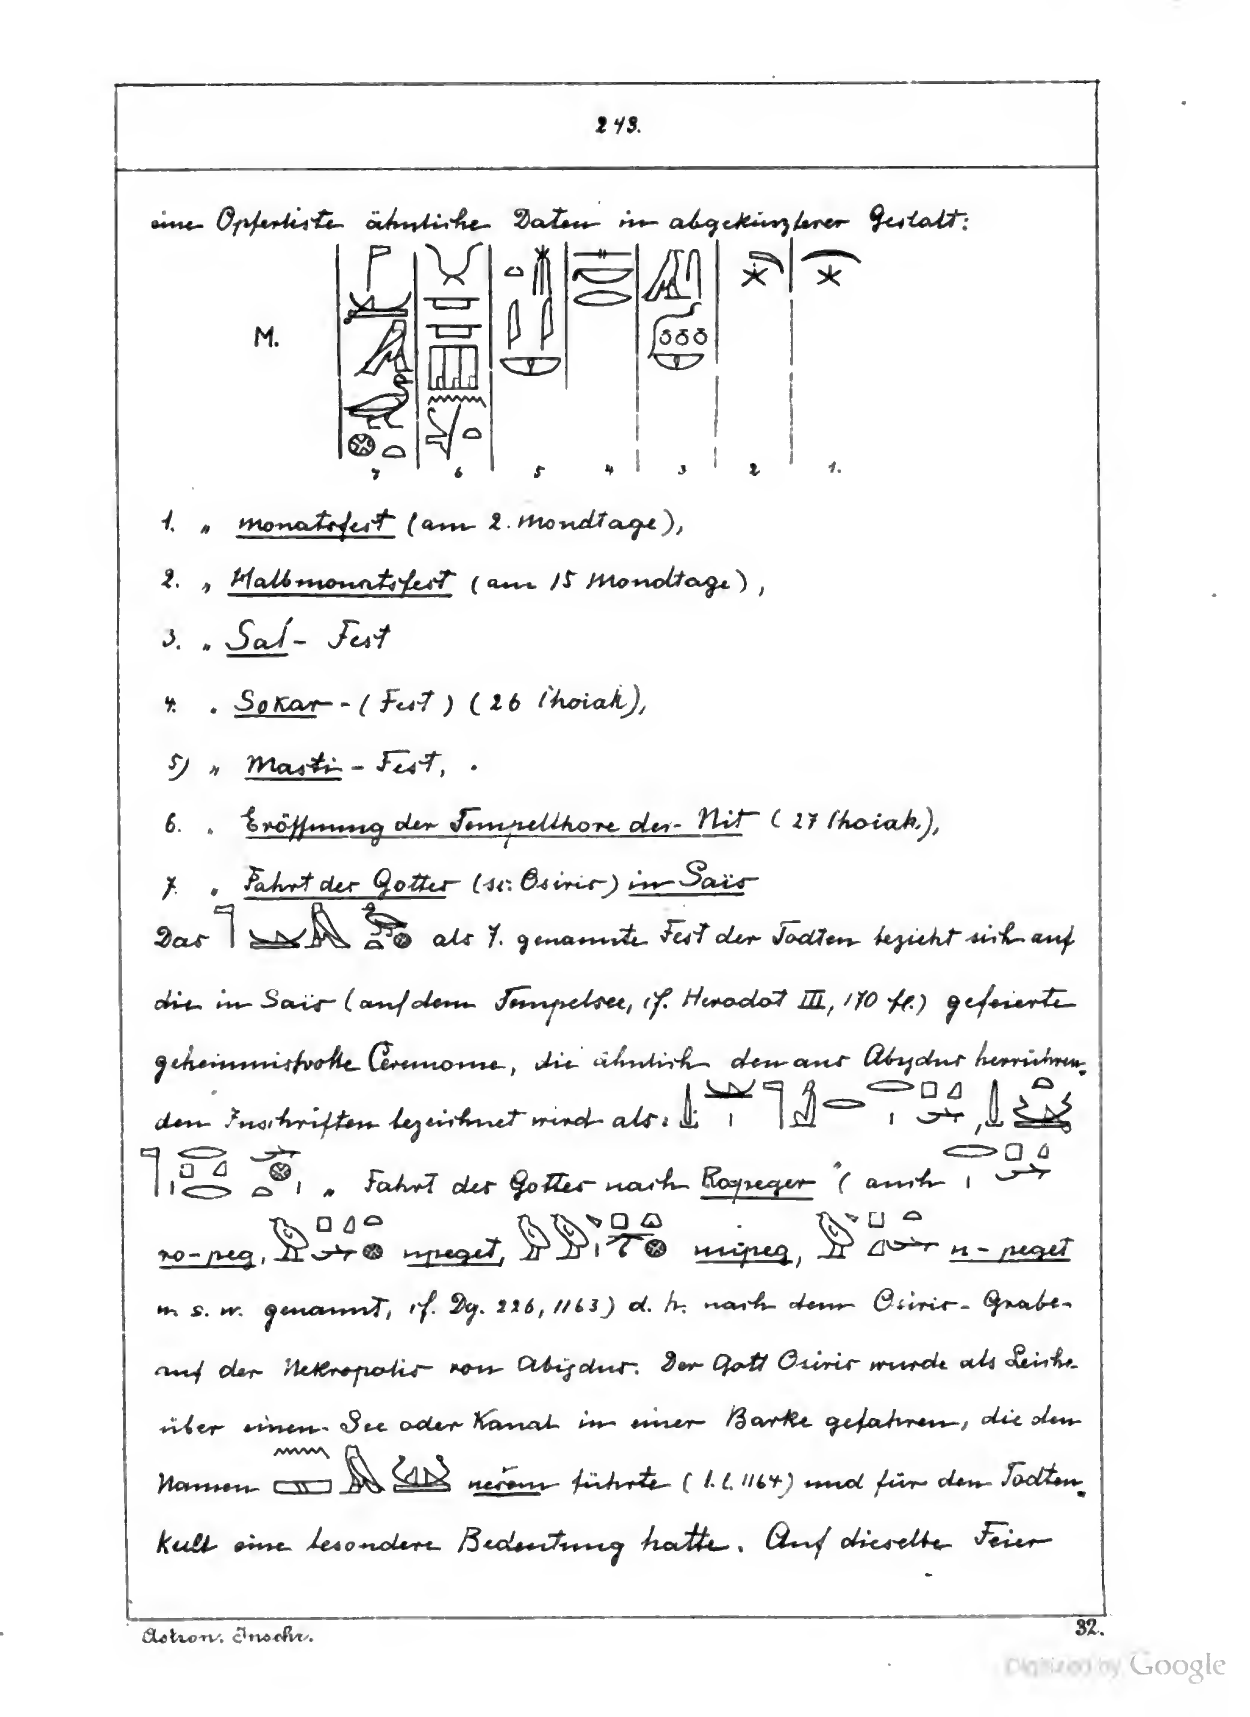 243.
eine Opferliste ähnliche Daten in abgekürzterer Gestalt:
M.
7 6 5 4 3 2 1.
1. „ Monatsfest (am 2. Mondtage),
2. „ Halbmonatsfest (am 15 Mondtage),
3. „ Sal- Fest
4. „ Sokar-(Fest) (26 Choiak),
5) „ Masti-Fest,
6. „ Eröffnung der Tempelthore der Nit (27 Choiak.),
7. „ Fahrt der Gotter (sc. Osiris) in Saïs
Das als 7. genannte Fest der Todten bezieht sich auf
die in Saïs (auf dem Tempelsee, cf. Herodot III, 170 fl.) gefeierte
geheimnisvolle Ceremonie, die ähnlich den aus Abydus herrühren-
den Inschriften bezeichnet wird als: ,
„ Fahrt des Gottes nach Ropeger" (auch
ro-peg, upeget, uuipeg, u-peget
u. s. w. genannt, cf. Dg. 226, 1163) d. h. nach dem Osiris-Grabe
auf der Nekropolis von Abydus. Der Gott Osiris wurde als Leiche
über einen See oder Kanal in einer Barke gefahren, die den
Namen nešem führte (l.l. 1164) und für den Todten-
kult eine besondere Bedeutung hatte. Auf dieselbe Feier
Astron. Inschr. 32.
Digitized by Google